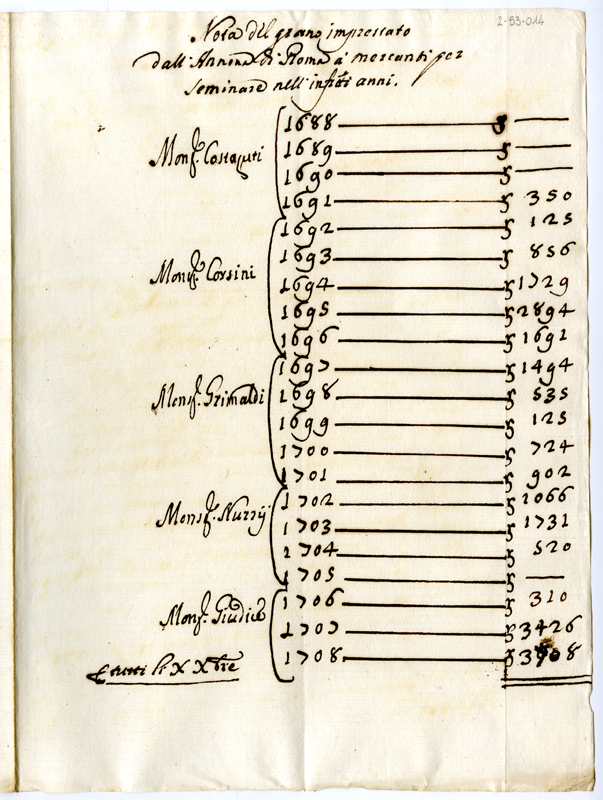 2-53-014
Nota del grano imprestato
dall'Annona di Roma a' mercanti per
seminare nell'infrti anni.
Monsr. Costaguti
1688 — 
1689 — 
1690 — 
1691 — 350
Monsr. Corsini
1692 — 125
1693 — 856
1694 — 1729
1695 — 2894
1696 — 1691
Monsr. Grimaldi
1697 — 1494
1698 — 535
1699 — 125
1700 — 724
1701 — 902
Monsr. Nuzzij
1702 — 1066
1703 — 1731
1704 — 520
1705 — 
Monsr. Giudice
1706 — 310
1707 — 3426
1708 — 3908
E tutti li X Xbre